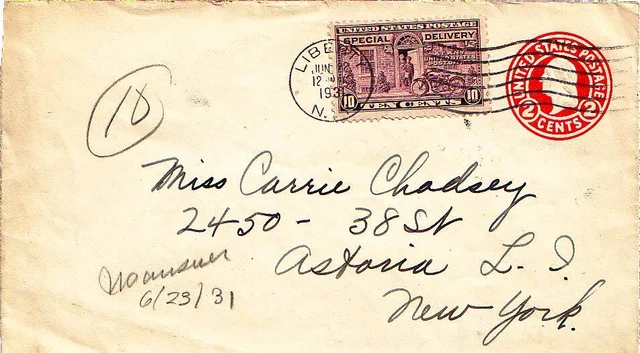 UNITED STATES POSTAGE
SPECIAL DELIVERY
10 TEN CENTS 10
LIBERTY
JUN
12
193
N.
UNITED STATES POSTAGE
2 CENTS 2
10
Miss Carrie Chadsey
2450 - 38 St
Astoria L. I.
New York.
No answer
6/23/31